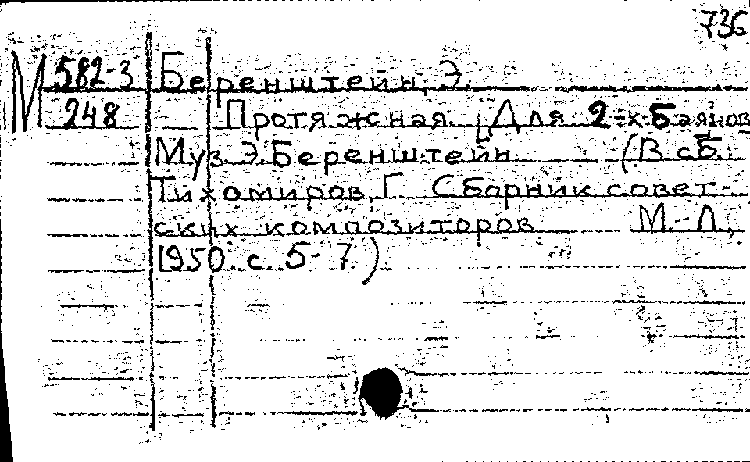 736
М 582-3 Беренштейн, Э.
248 Протяжная. [Для 2-х баянов
Муз. Э. Беренштейн (В сб.
Тихомиров, Г. Сборник совет-
ских композиторов М.-Л.,
1950. с. 5-7.)